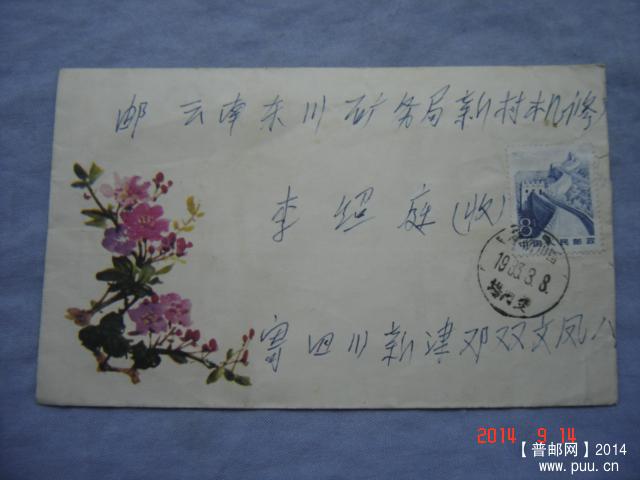 邮 云南东川矿务局新村机修
李绍庭(收)
8
中国人民邮政
四川
1983.3.8.
寄四川新津邓双文凤八
2014 9 14
【普邮网】2014
www.puu.cn